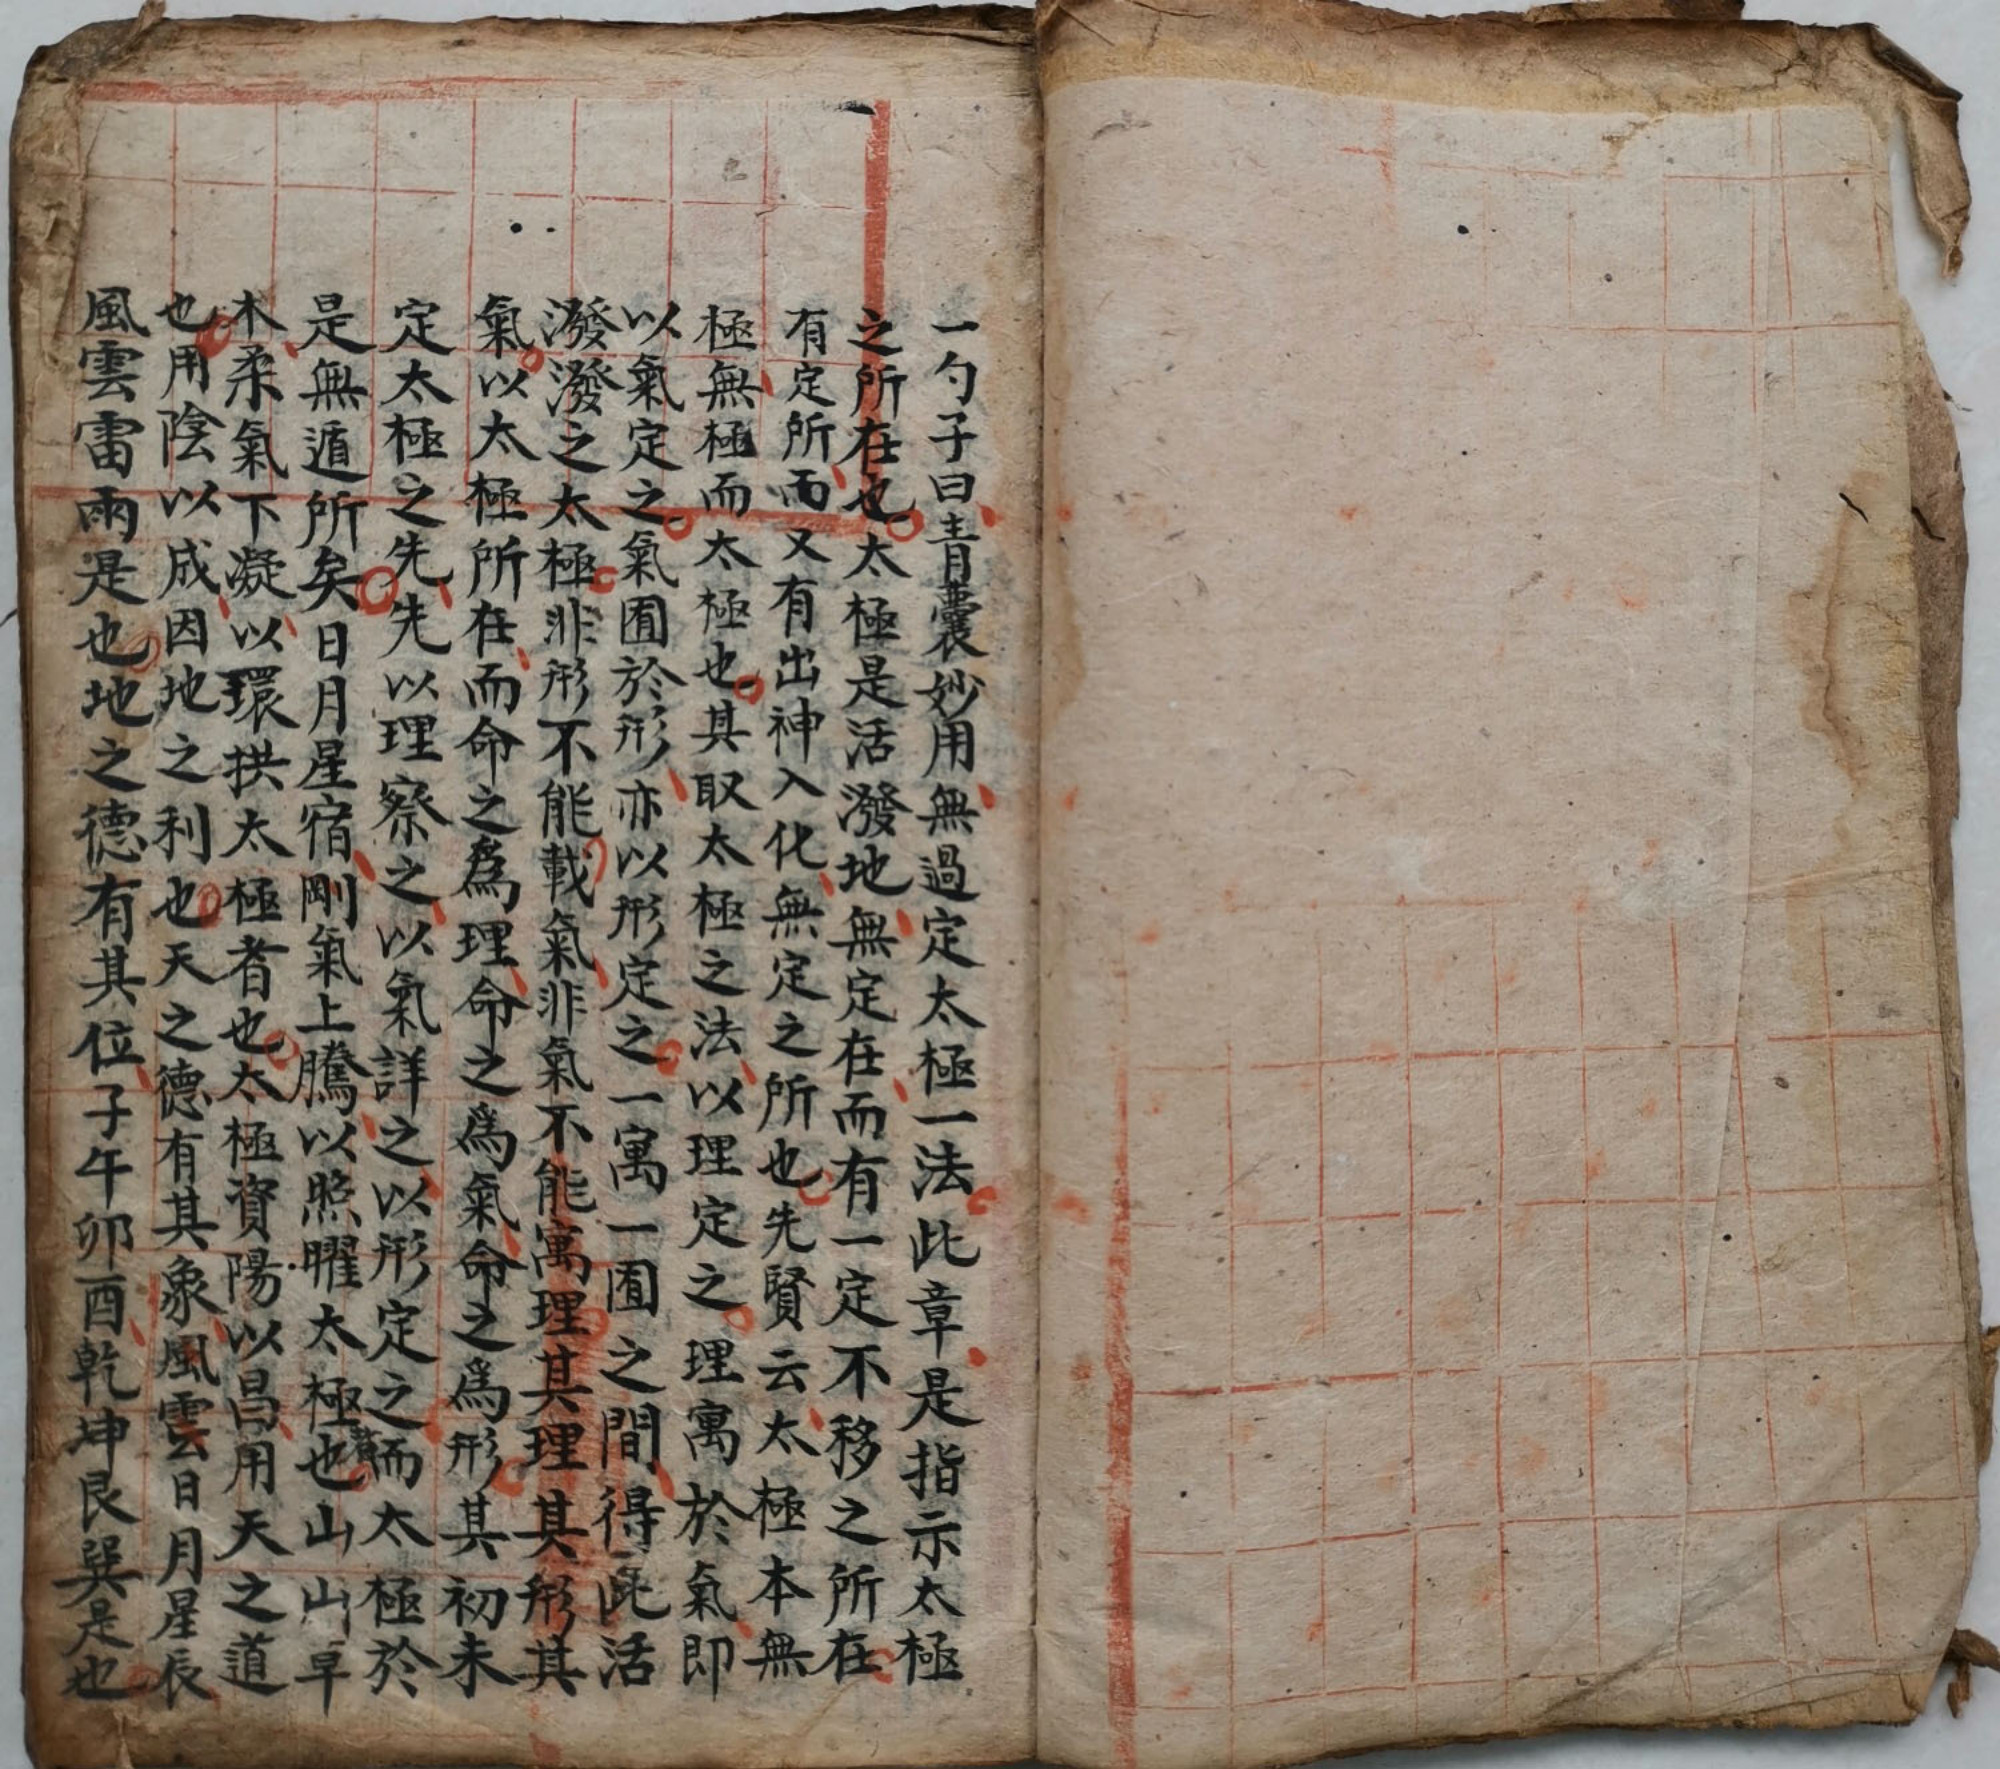 一勺子曰青囊妙用無過定太極一法此章是指示太極
之所在也太極是活潑地無定在而有一定不移之所在
有定所而又有出神入化無定之所也先賢云太極本無
極無極而太極也其取太極之法以理定之理寓於氣即
以氣定之氣囿於形亦以形定之一寓一囿之間得此活
潑潑之太極非形不能載氣非氣不能寓理其理其形其
氣以太極所在而命之為理命之為氣命之為形其初未
定太極之先先以理察之以氣詳之以形定之而太極於
是無遁所矣日月星宿剛氣上騰以照曜太極也山山阜
木柔氣下凝以環拱太極者也太極資陽以昌用天之道
也用陰以成因地之利也天之德有其象風雲日月星辰
風雲雷雨是也地之德有其位子午卯酉乾坤艮巽是也